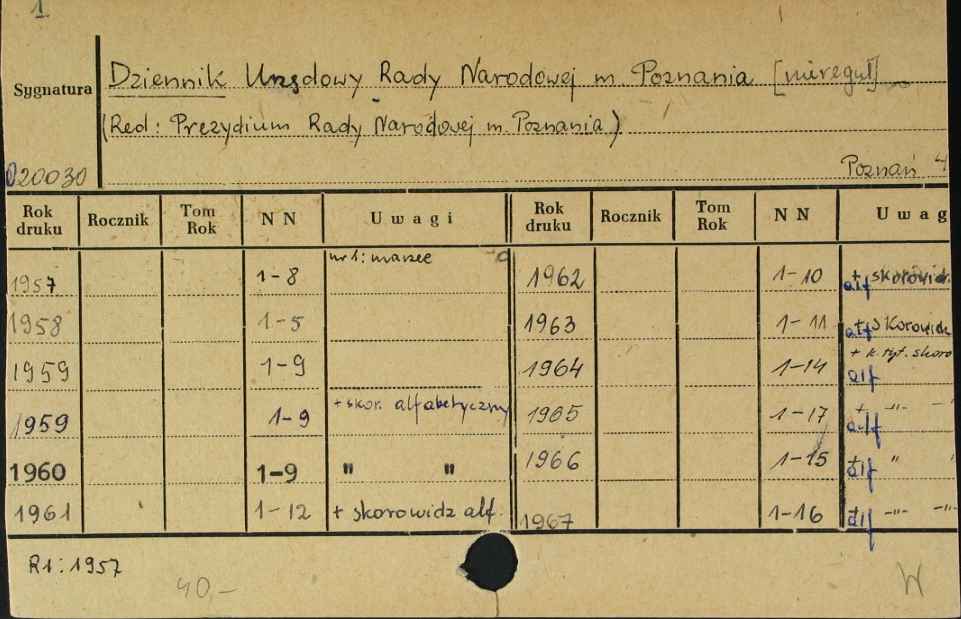 1
Sygnatura
Dziennik Urzędowy Rady Narodowej m. Poznania [nieregul]
(Red: Prezydium Rady Narodowej m. Poznania)
020030
Poznań
Rok druku Rocznik Tom Rok NN Uwagi Rok druku Rocznik Tom Rok NN Uwag
1957 1-8 nr 1: marzec 1962 1-10 + skorowidz. alf
1958 1-5 1963 1-11 + skorowidz alf
1959 1-9 1964 1-14 + k. tyt. skoro alf
1959 1-9 + skor. alfabetyczny 1965 1-17 + -"- alf
1960 1-9 " " 1966 1-15 + " alf
1961 1-12 + skorowidz alf. 1967 1-16 + -"- -"- alf
R1: 1957
40,-
W